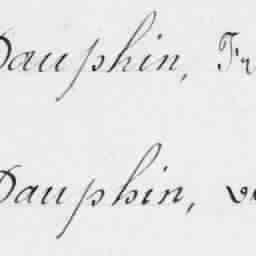 Dauphin, Fr
Dauphin, v